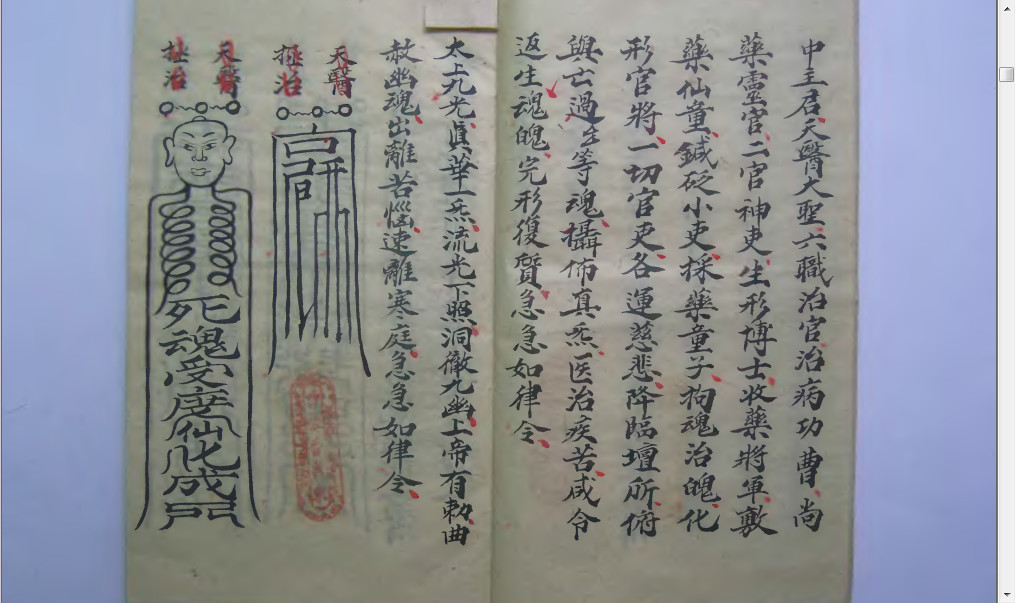 中主君天醫大聖六職治官治病功曹尚
藥靈官二官神吏生形博士收藥將軍敷
藥仙童鍼砭小吏採藥童子狗魂治魄化
形官將一切官吏各運慈悲降臨壇所俯
與亡過等魂攝佈真炁医治疾苦咸令
返生魂魄完形復質急急如律令
太上九光真華一炁流光下照洞徹九幽上帝有勅曲
赦幽魂出離苦惱速離寒庭急急如律令
天醫
拯治
天醫
拯治
死魂受度仙化成